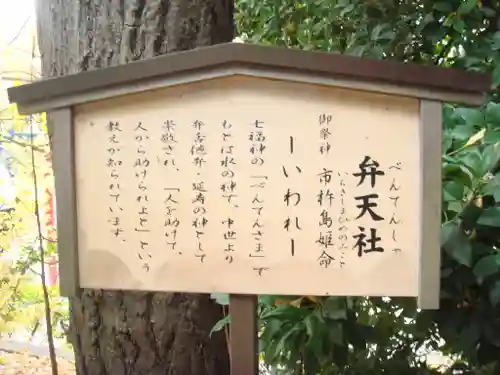 べんてんしゃ
弁天社
御祭神 市杵島姫命
いちきしまひめのみこと
ーいわれー
七福神の「べんてんさま」で
もとは水の神で、中世より
弁舌・延寿の神として
崇敬され、「人を助けて、
人から助けられよと」という
教えが知られています。